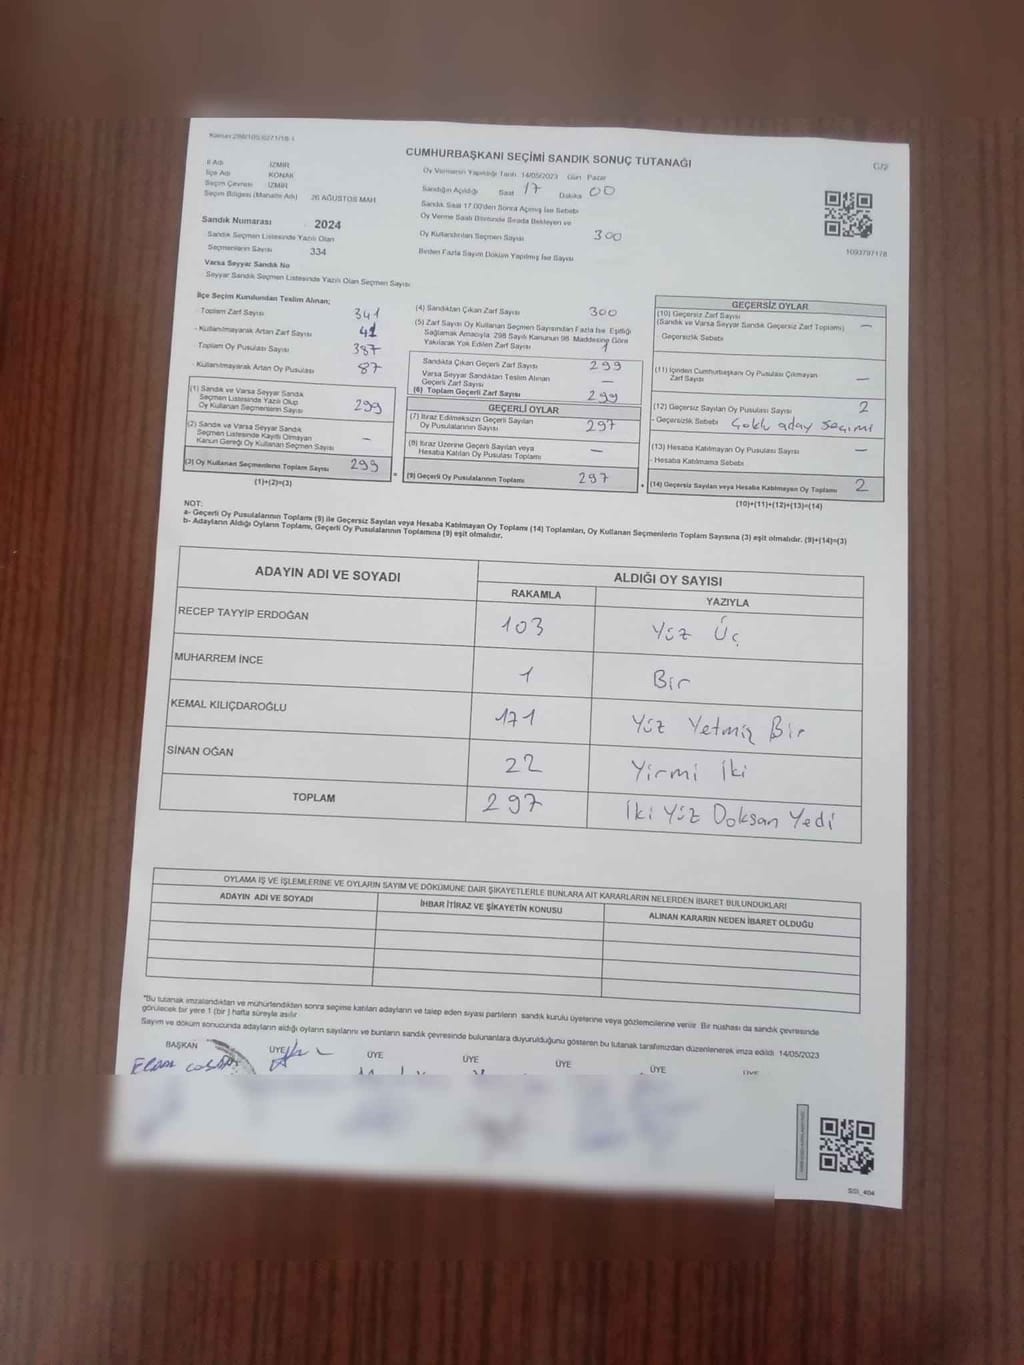 CUMHURBAŞKANI SEÇİMİ SANDIK SONUÇ TUTANAĞI
İl Adı İZMİR
İlçe Adı KONAK
Seçim Çevresi İZMİR
Seçim Bölgesi (Mahalle Adı) 26 AĞUSTOS MAH.
Sandık Numarası 2024
Sandık Seçmen Listesinde Yazılı Olan
Seçmenlerin Sayısı 334
Varsa Seyyar Sandık No
Seyyar Sandık Seçmen Listesinde Yazılı Olan Seçmen Sayısı
Oy Vermenin Yapıldığı Tarih 14/05/2023 Gün Pazar
Sandığın Açıldığı Saat 17 Dakika 00
Sandık Saat 17.00'den Sonra Açılmış İse Sebebi
Oy Verme Saati Bitiminde Sırada Bekleyen ve
Oy Kullandırılan Seçmen Sayısı 300
Birden Fazla Sayım Döküm Yapılmış İse Sayısı
C/2
1093797178
İlçe Seçim Kurulundan Teslim Alınan;
- Toplam Zarf Sayısı 341
- Kullanılmayarak Artan Zarf Sayısı 41
Toplam Oy Pusulası Sayısı 387
- Kullanılmayarak Artan Oy Pusulası 87
(1) Sandık ve Varsa Seyyar Sandık
Seçmen Listesinde Yazılı Olup
Oy Kullanan Seçmenlerin Sayısı 299
(2) Sandık ve Varsa Seyyar Sandık
Seçmen Listesinde Kayıtlı Olmayan
Kanun Gereği Oy Kullanan Seçmen Sayısı –
(3) Oy Kullanan Seçmenlerin Toplam Sayısı 299
(1)+(2)=(3)
(4) Sandıktan Çıkan Zarf Sayısı 300
(5) Zarf Sayısı Oy Kullanan Seçmen Sayısından Fazla İse Eşitliği
Sağlamak Amacıyla, 298 Sayılı Kanunun 98. Maddesine Göre
Yakılarak Yok Edilen Zarf Sayısı 1
Sandıkta Çıkan Geçerli Zarf Sayısı 299
Varsa Seyyar Sandıktan Teslim Alınan
Geçerli Zarf Sayısı –
(6) Toplam Geçerli Zarf Sayısı 299
GEÇERLİ OYLAR
(7) İtiraz Edilmeksizin Geçerli Sayılan
Oy Pusulalarının Sayısı 297
(8) İtiraz Üzerine Geçerli Sayılan veya
Hesaba Katılan Oy Pusulası Toplamı –
(9) Geçerli Oy Pusulalarının Toplamı 297
GEÇERSİZ OYLAR
(10) Geçersiz Zarf Sayısı
(Sandık ve Varsa Seyyar Sandık Geçersiz Zarf Toplamı) –
Geçersizlik Sebebi
(11) İçinden Cumhurbaşkanı Oy Pusulası Çıkmayan
Zarf Sayısı –
(12) Geçersiz Sayılan Oy Pusulası Sayısı 2
- Geçersizlik Sebebi Çoklu aday seçimi
(13) Hesaba Katılmayan Oy Pusulası Sayısı –
- Hesaba Katılmama Sebebi
(14) Geçersiz Sayılan veya Hesaba Katılmayan Oy Toplamı 2
(10)+(11)+(12)+(13)=(14)
NOT:
a- Geçerli Oy Pusulalarının Toplamı (9) ile Geçersiz Sayılan veya Hesaba Katılmayan Oy Toplamı (14) Toplamları, Oy Kullanan Seçmenlerin Toplam Sayısına (3) eşit olmalıdır. (9)+(14)=(3)
b- Adayların Aldığı Oyların Toplamı, Geçerli Oy Pusulalarının Toplamına (9) eşit olmalıdır.
ADAYIN ADI VE SOYADI ALDIĞI OY SAYISI
RAKAMLA YAZIYLA
RECEP TAYYİP ERDOĞAN 103 Yüz Üç
MUHARREM İNCE 1 Bir
KEMAL KILIÇDAROĞLU 171 Yüz Yetmiş Bir
SİNAN OĞAN 22 Yirmi İki
TOPLAM 297 İki Yüz Doksan Yedi
OYLAMA İŞ VE İŞLEMLERİNE VE OYLARIN SAYIM VE DÖKÜMÜNE DAİR ŞİKAYETLERLE BUNLARA AİT KARARLARIN NELERDEN İBARET BULUNDUKLARI
ADAYIN ADI VE SOYADI İHBAR İTİRAZ VE ŞİKAYETİN KONUSU ALINAN KARARIN NEDEN İBARET OLDUĞU
*Bu tutanak imzalandıktan ve mühürlendikten sonra seçime katılan adayların ve talep eden siyasi partilerin sandık kurulu üyelerine veya gözlemcilerine verilir. Bir nüshası da sandık çevresinde
görülecek bir yere 1 (bir) hafta süreyle asılır
Sayım ve döküm sonucunda adayların aldığı oyların sayılarını ve bunların sandık çevresinde bulunanlara duyurulduğunu gösteren bu tutanak tarafımızdan düzenlenerek imza edildi 14/05/2023
BAŞKAN ÜYE ÜYE ÜYE ÜYE ÜYE ÜYE